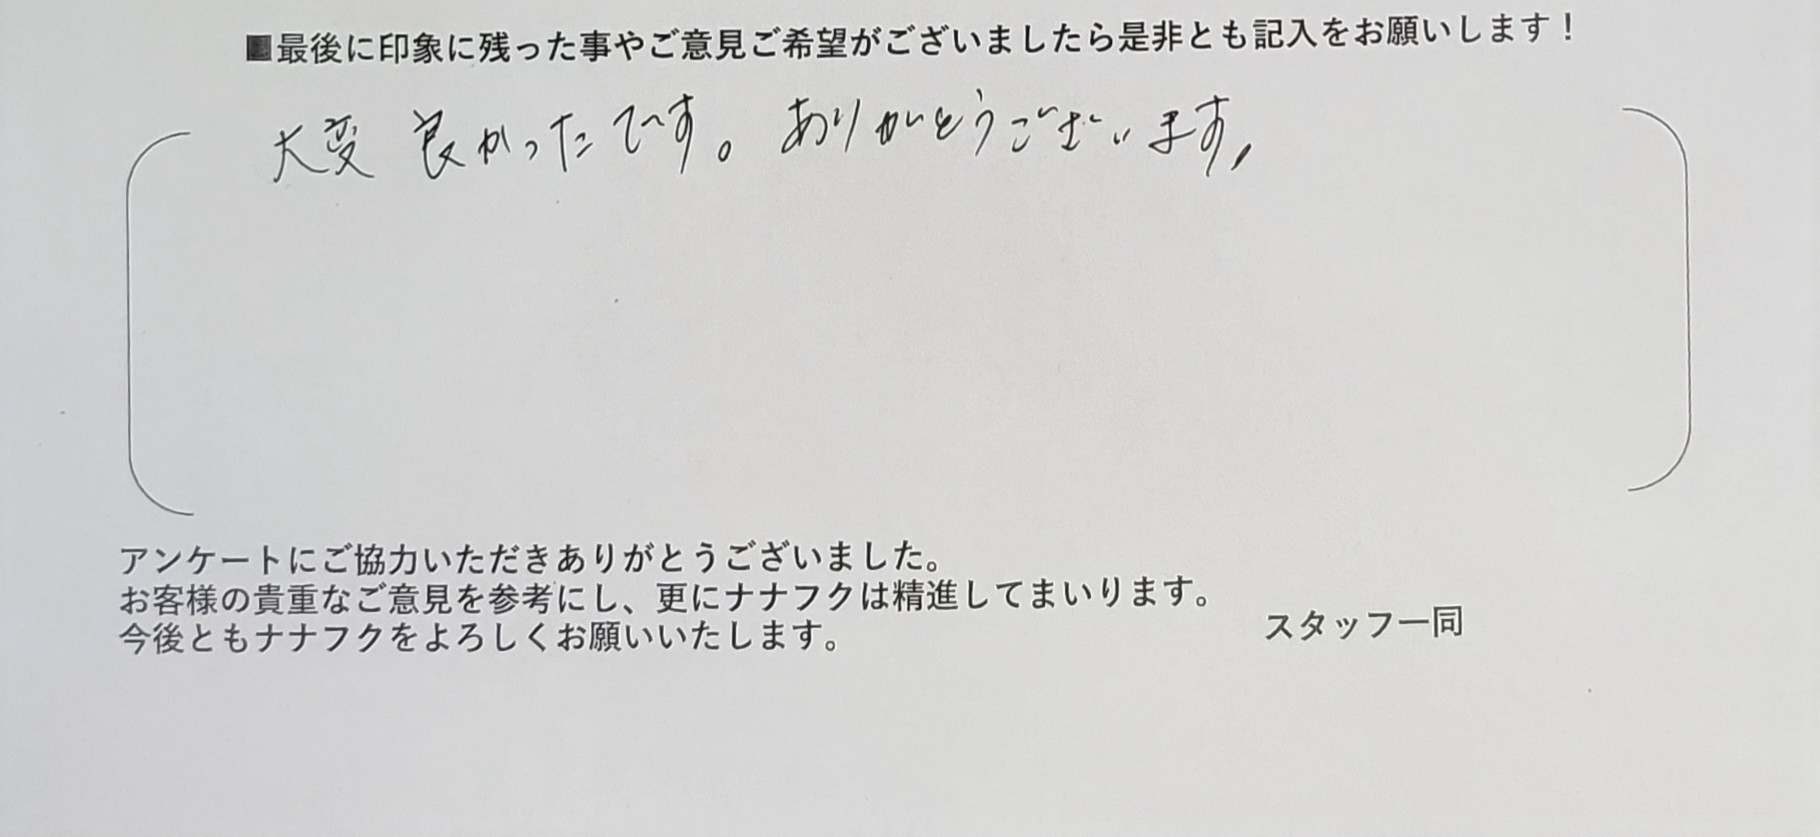 ■最後に印象に残った事やご意見ご希望がございましたら是非とも記入をお願いします！
大変 良かったです。ありがとうございます,
アンケートにご協力いただきありがとうございました。
お客様の貴重なご意見を参考にし、更にナナフクは精進してまいります。
今後ともナナフクをよろしくお願いいたします。
スタッフ一同